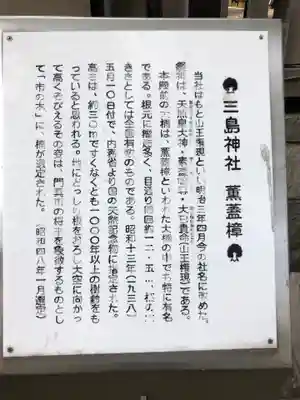 三島神社 薫蓋樟
当社はもと山王権現といい明治三年四月今の社名に改めた。
祭神は、天照皇大神・素盞嗚尊・大己貴命(山王権現)である。
本殿前の大樟は、薫蓋樟といわれ大樟の中でも特に有名
である。根元に瘤が多く、目通り周囲約一二・五m、枝の
きさとしては全国有数のものである。昭和十三年(一九三八)
五月一〇日付で、内務省より国の天然記念物に指定された。
高さは、約三〇mですくなくとも一〇〇〇年以上の樹齢をも
っていると思われる。地にどっしり根をおろし大空に向かっ
て高くそびえるその容は、門真市の将来を象徴するものとし
て「市の木」に、樟が選定された。(昭和四八年一月選定)